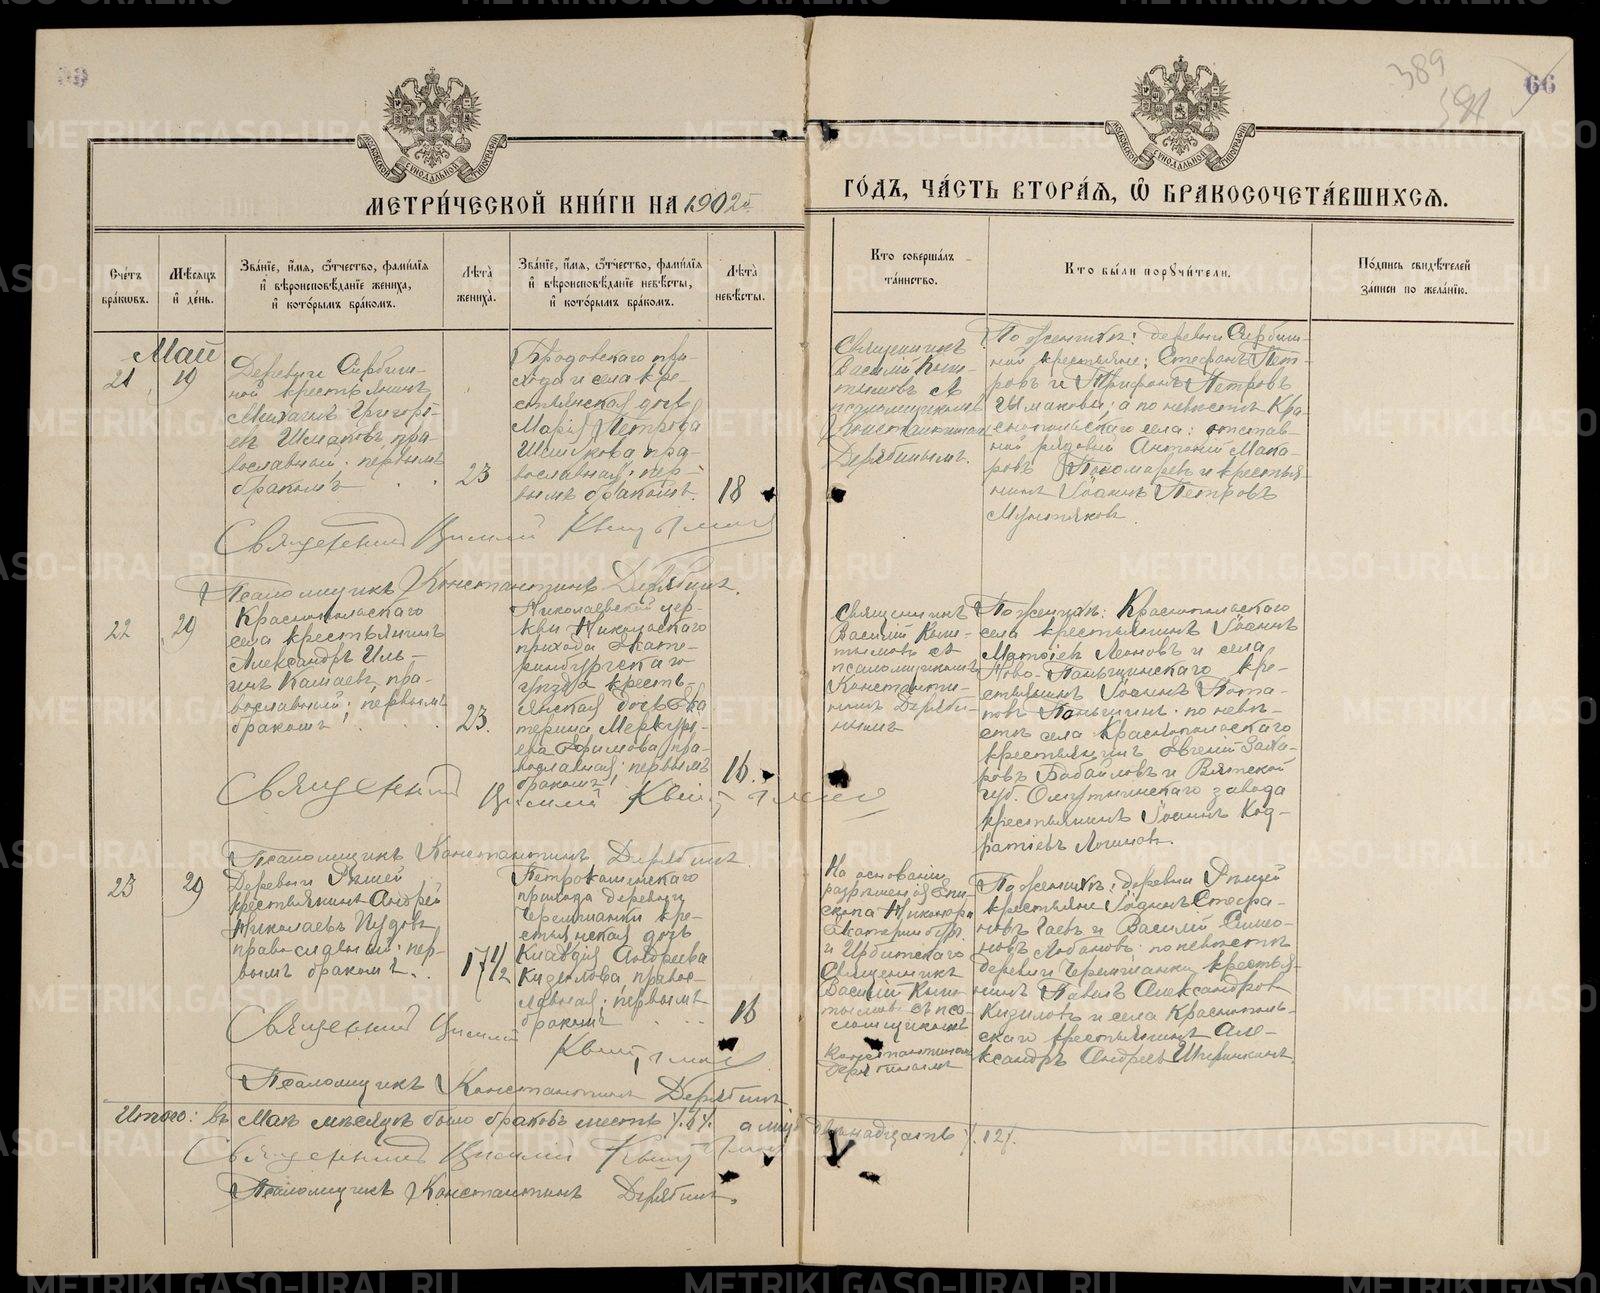 66
389
МЕТРИ́ЧЕСКОЙ КНИ́ГИ НА 1902й
ГО́ДЪ, ЧА́СТЬ ВТОРА́Я, Ѡ҆ БРАКОСОЧЕТА́ВШИХСЯ.
Сче́тъ бра́ковъ.
Мѣ́сяцъ и҆ де́нь.
Зва́нїе, и҆́мя, ѻ҆́тчество, фами́лїя
и҆ вѣроисповѣ́данїе жениха̀,
и҆ кото́рымъ бра́комъ.
Лѣ́та жениха̀.
Зва́нїе, и҆́мя, ѻ҆́тчество, фами́лїя
и҆ вѣроисповѣ́данїе невѣ́сты,
и҆ кото́рымъ бра́комъ.
Лѣ́та невѣ́сты.
Кто̀ соверша́лъ
та́инство.
Кто̀ бы́ли порꙋчи́тели.
По́дпись свидѣ́телей
за́писи по жела́нїю.
Май
21
19
Деревни Сирбиш-
ной крестьянинъ
Михаилъ Григорь-
евъ Шмаковъ пра-
вославный; первымъ
бракомъ
23
Бродовскаго при-
хода и села кре-
стьянская дочь
Марія Петрова
православная; пер-
вымъ бракомъ.
18
Священникъ
Василій Кыш-
тымовъ съ
псаломщикомъ
Константиномъ
Дерябинымъ.
По женихѣ: деревни Сирбиш-
ной крестьяне: Стефанъ Пет-
ровъ и Трифонъ Петровъ
Шмаковы; а по невѣстѣ Кра-
снопольскаго села: отстав-
ной рядовой Антоній Мака-
ровъ Пономаревъ и крестья-
нинъ Іоаннъ Петровъ
Священникъ Василій Кыштымовъ
Псаломщикъ Константинъ Дерябинъ.
22
29
Краснопольскаго
села крестьянинъ
Александръ Иль-
инъ Камаевъ, пра-
вославный; первымъ
бракомъ
23.
Николаевской цер-
кви Никольскаго
прихода Екате-
ринбургскаго
уѣзда кресть-
янская дочь Ека
терина Меркурь-
ева Ефимова, пра-
вославная; первымъ
бракомъ
16.
Священникъ
Василій Кыш-
тымовъ съ
псаломщикомъ
Константи-
номъ Деряби-
нымъ
По женихѣ: Краснопольскаго
села крестьянинъ Іоаннъ
Матѳіевъ Леоновъ и села
Ново-Паньшинскаго кре-
стьянинъ Іоаннъ Пота-
повъ Паньшинъ; по невѣ-
стѣ села Краснопольскаго
крестьянинъ Евгеній Заха-
ровъ Бабайловъ и Вятской
губ. Омутнинскаго завода
крестьянинъ Іоаннъ Код-
ратіевъ Логиновъ.
Священникъ Василій Кыштымовъ
Псаломщикъ Константинъ Дерябинъ.
23
29
Деревни Рѣшей
крестьянинъ Андрей
Николаевъ Пудовъ
православный; пер-
вымъ бракомъ.
17 1/2
Петрокаменскаго
прихода деревни
Черемшанки кре-
стьянская дочь
Клавдія Андреева
Кизилова право-
славная; первымъ
бракомъ
16
На основаніи
разрѣшенія Епи-
скопа Никанора
Екатеринбур.
и Ирбитскаго
Священникъ
Василій Кыш-
тымовъ съ пса-
ломщикомъ
Константиномъ
Дерябинымъ
По женихѣ: деревни Рѣшей
крестьяне Іоаннъ Стефа-
новъ Гаевъ и Василій Симо-
новъ Лобановъ; по невѣстѣ
деревни Черемшанки крестья-
нинъ Павелъ Александровъ
Кизиловъ и села Краснополь-
скаго крестьянинъ Але-
ксандръ Андреевъ
Священникъ Василій
Кыштымовъ
Псаломщикъ Константинъ Дерябинъ
Итого: въ Маѣ мѣсяцѣ было браковъ шесть /.6/. а лицъ двѣнадцать /.12/.
Священникъ Василій Кыштымовъ
Псаломщикъ Константинъ Дерябинъ.
METRIKI.GASO-URAL.RU